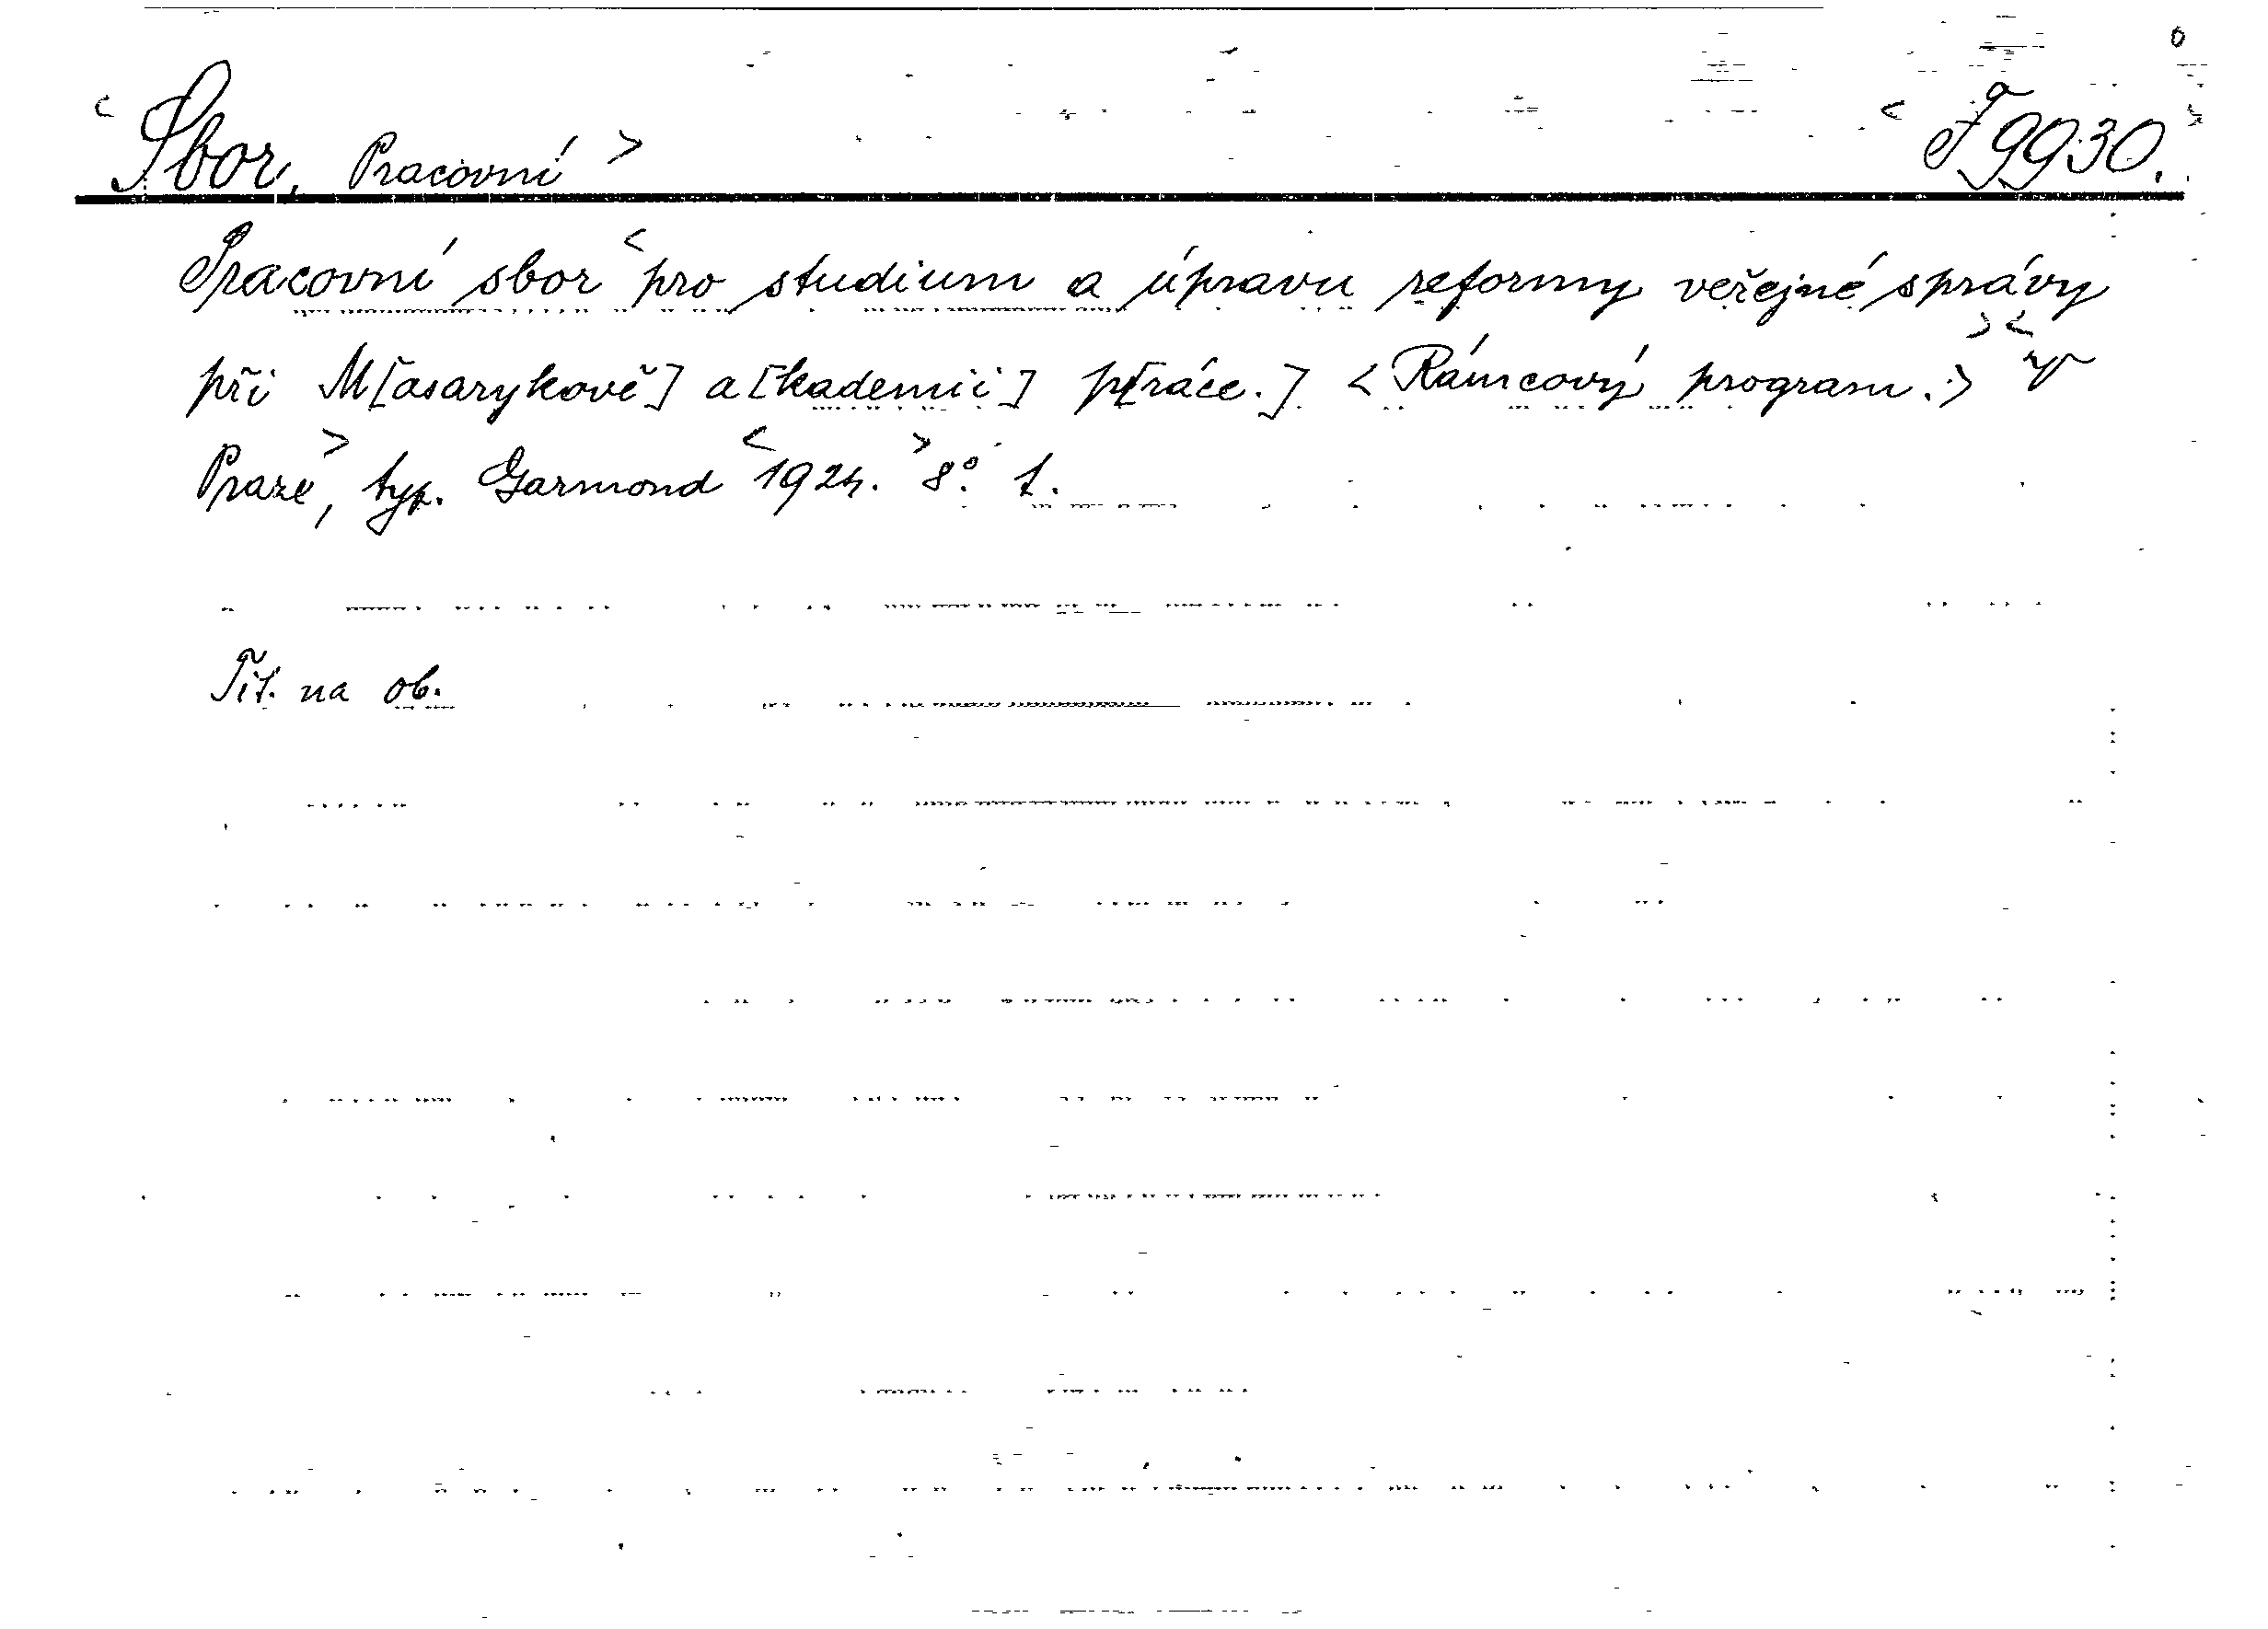 <Sbor, Pracovní> <J 9930.>
Pracovní sbor <pro studium a úpravu reformy veřejné správy
při M[asarykově] a[kademii] p[ráce.] <Rámcový program.> >< V
Praze>, typ. Garmond <1924.> 8°. 1.
Tit. na ob.